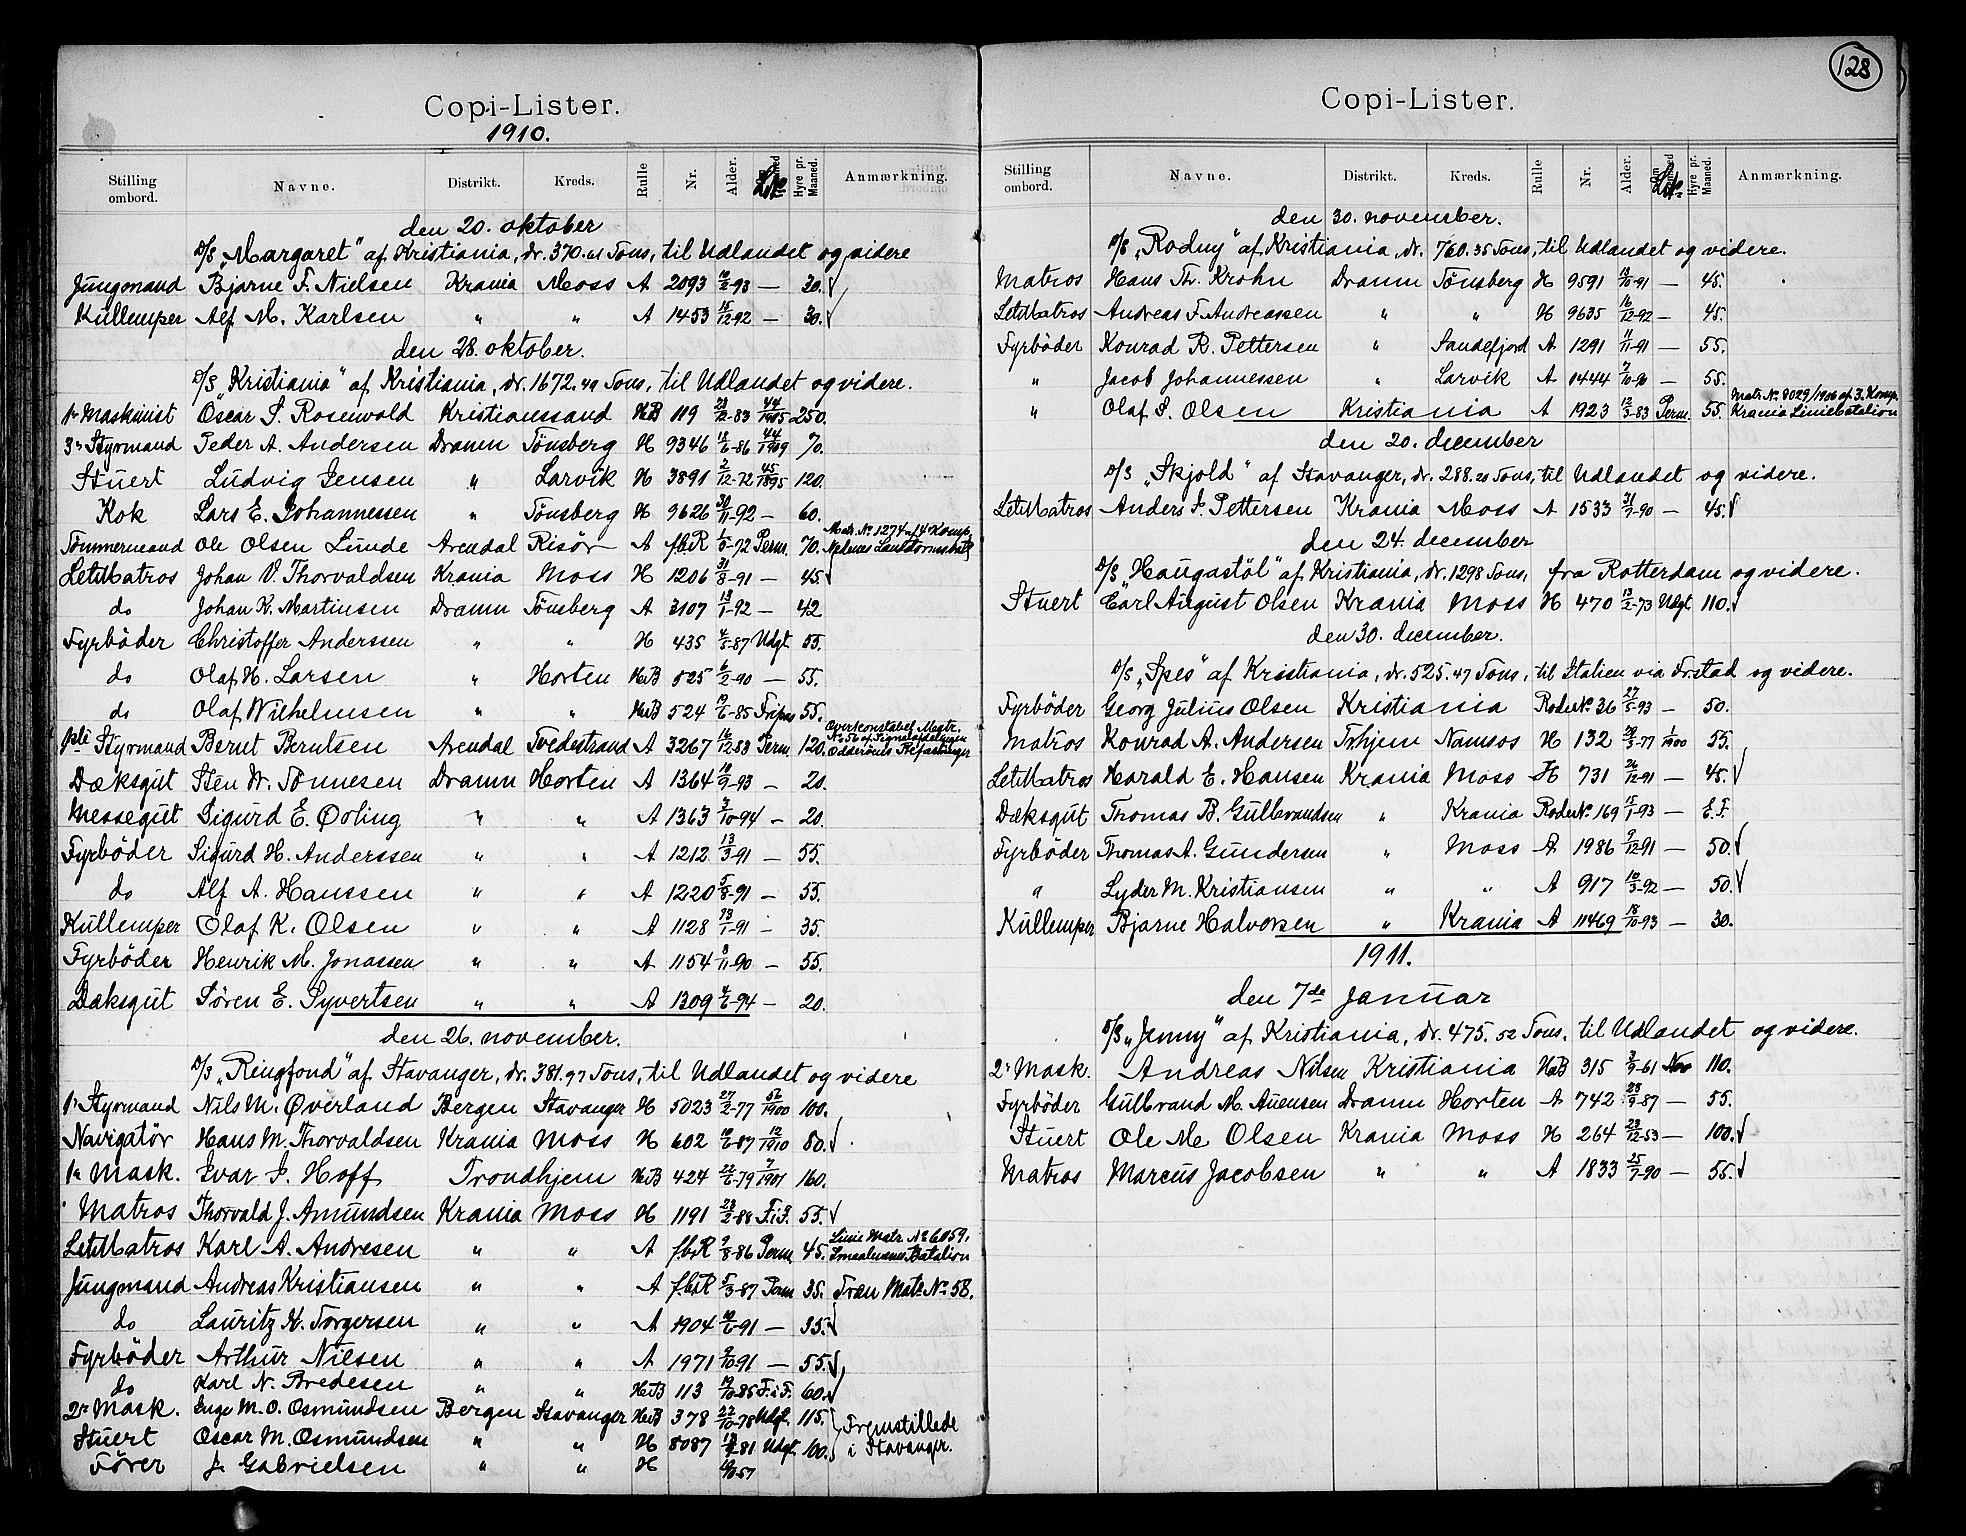 Copi-Lister.
1910.
Stilling ombord. Navne. Distrikt. Kreds. Rulle Nr. Alder. Hyre pr. Maaned. Anmærkning.
den 20. oktober
D/S „Margaret" af Kristiania, dr. 370.61 Tons, til Udlandet og videre
Jungmand Bjarne F. Nielsen Krania Moss A 2093 -93 — 30.
Kullemper Alf M. Karlsen " " A 1453 15/12-92 — 30.
den 28. oktober.
D/S „Kristiania" af Kristiania, dr. 1672.49 Tons, til Udlandet og videre.
1ste Maskinist Oscar S. Rosenvold Kristianssand HB 119 23/12-83 44/1905 250.
3die Styrmand Peder A. Andersen Dramn Tönsberg H 9346 12/6-86 44/1909 70.
Stuert Ludvig Jensen " Larvik H 3891 2/12-72 45/1895 120.
Kok Lars E. Johannessen " Tönsberg H 9626 30/11-92 — 60.
Tömmermand Ole Olsen Lunde Arendal Risör A fbR -72 Perm. 70. Matr. No. 1274 af 4 Komp. Nedenes Landstormsbat.
LetMatros Johan V. Thorvaldsen Krania Moss H 1206 31/8-91 — 45
do Johan K. Martinsen Dramn Tönsberg A 3107 13/1-92 — 42
Fyrböder Christoffer Anderssen " " H 435 -87 Udgt. 55.
do Olaf H. Larsen " Horten HB 525 6/2-90 — 55.
do Olaf Wilhelmsen " " HB 524 19/6-85 Fripas 55.
Styrmand Bernt Berntsen Arendal Tvedestrand A 3267 16/12-83 Perm. 120. Overkonstabel Matr. No 56 af Signalafdelingen Odderöens Befæstninger
Dæksgut Sten W. Tönnesen Dramn Horten A 1364 10/9-93 — 20.
Messegut Sigurd E. Öoling " " A 1363 3/10-94 — 20.
Fyrböder Sigurd H. Anderssen " " A 1212 13/3-91 — 55.
do Alf A. Hanssen " " A 1220 5/8-91 — 55.
Kullemper Olaf K. Olsen " " A 1128 -91 — 35.
Fyrböder Henrik M. Jonassen " " A 1154 8/11-90 — 55.
Dæksgut Sören E. Syvertsen " " A 1309 4/6-94 — 20.
den 26. november.
D/S „Ringfond" af Stavanger, dr. 381.97 Tons, til Udlandet og videre
1ste Styrmand Nils M. Øverland Bergen Stavanger H 5023 27/2-77 52/1900 100.
Navigatör Hans M. Thorvaldsen Krania Moss H 602 10/6-87 12/1910 80.
1ste Mask. Ivar S. Hoff Trondhjem HB 424 22/6-79 7/1901 160.
Matros Thorvald J. Amundsen Krania Moss H 1191 23/2-88 F.i.F. 55.
LetMatros Karl A. Andresen " " A fbR 9/8-86 Perm 45. Linie Matr. No 6059, Smaalenenes Batalion
Jungmand Andreas Kristiansen " " A fbR 5/3-87 Perm 35. Træn Matr. No 58.
do Lauritz K. Torgersen " " A 1904 10/6-91 — 35.
Fyrböder Arthur Nilsen " " A 1971 2/10-91 — 55.
do Karl N. Bredesen " " HB 113 19/10-85 F.i.F. 60.
2den Mask. Inge M. O. Osmundsen Bergen Stavanger HB 378 22/10-78 Udf. 115. Fremstillede
Stuert Oscar M. Osmundsen " " H 8087 -81 Udgt. 100. i Stavanger.
Förer J. Gabrielsen " " H -57
128
Copi-Lister.
Stilling ombord. Navne. Distrikt. Kreds. Rulle Nr. Alder. Hyre pr. Maaned. Anmærkning.
den 30. november.
D/S „Rodny" af Kristiania, dr. 760.35 Tons, til Udlandet og videre.
Matros Hans Th. Krohn Dramn Tönsberg H 9591 -91 — 45.
LetMatros Andreas F. Andreassen " " H 9635 16/12-92 — 45.
Fyrböder Konrad R. Pettersen " Sandefjord A 1291 11/11-91 — 55.
" Jacob Johannessen " Larvik A 1444 7/10-90 — 55.
" Olaf S. Olsen Kristiania A 1923 12/3-83 Perm. 55. Matr. No. 8029/1906 af 3. Komp. Krania Liniebatalion
den 20. december
D/S „Skjold" af Stavanger, dr. 288.20 Tons, til Udlandet og videre.
LetMatros Anders J. Pettersen Krania Moss A 1533 31/7-90 — 45.
den 24. december
D/S „Haugastöl" af Kristiania, dr. 1298 Tons, fra Rotterdam og videre.
Stuert Carl August Olsen Krania Moss H 470 13/2-73 Udgt. 110.
den 30. december.
D/S „Spes" af Kristiania, dr. 525.47 Tons, til Italien via Fr.stad og videre.
Fyrböder Georg Julius Olsen Kristiania Rode No. 36 27/5-93 — 50.
Matros Konrad A. Andersen Trhjem Namsos H 132 -77 1/1900 55.
LetMatros Harald E. Hansen Krania Moss H 731 26/12-91 — 45.
Dæksgut Thomas B. Gulbrandsen " Krania Rode No. 169 15/1-93 — E.F.
Fyrböder Thomas A. Gundersen " Moss A 1986 9/12-91 — 50.
" Lyder M. Kristiansen " " A 917 10/3-92 — 50.
Kullemper Bjarne Halvorsen " Krania A 11469 18/10-93 — 30.
1911.
den 7de Januar
D/S „Jenny" af Kristiania, dr. 475.52 Tons, til Udlandet og videre.
2den Mask. Andreas Nilsen Kristiania HB 315 3/9-61 110.
Fyrböder Gulbrand M. Auensen Dramn Horten A 742 23/9-87 — 55.
Stuert Ole M. Olsen Krania Moss H 264 23/12-53 — 100.
Matros Marcus Jacobsen " " A 1833 25/7-90 — 55.